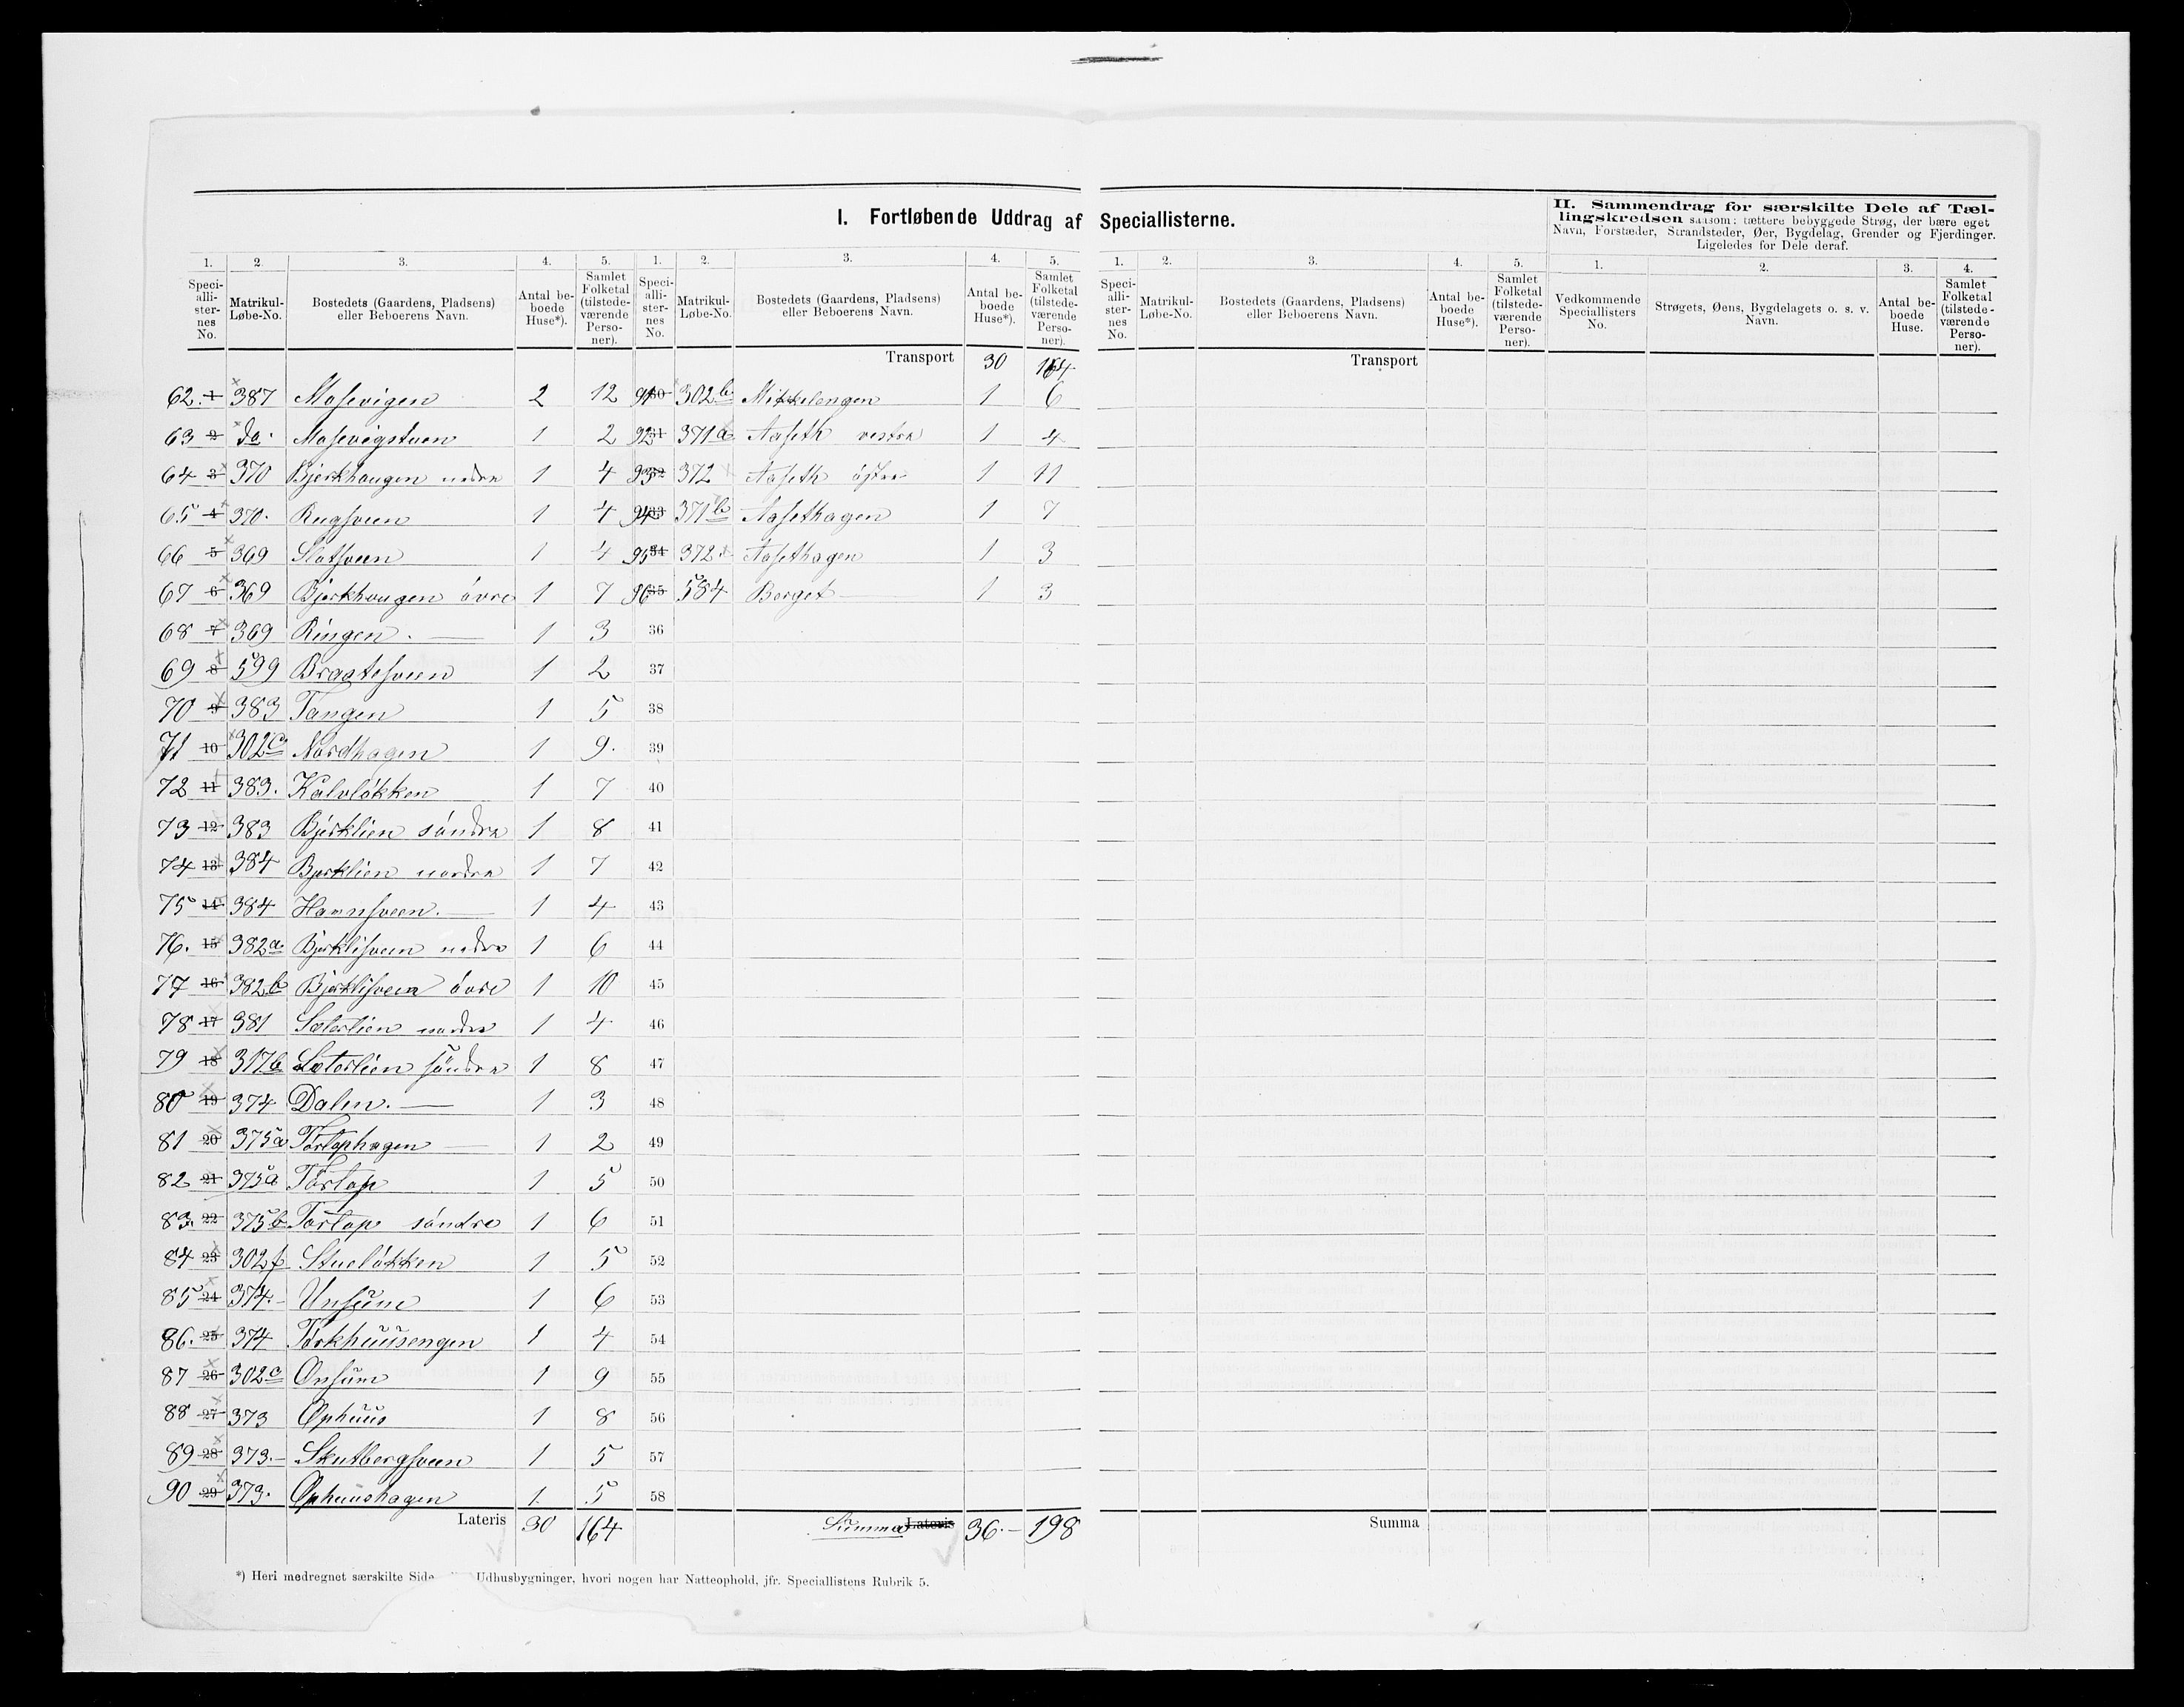 I. Fortløbende Uddrag af Speciallisterne.
II. Sammendrag for særskilte Dele af Tæl-
lingskredsen saasom: tættere bebyggede Strøg, der bære eget
Navn, Forstæder, Strandsteder, Øer, Bygdelag, Grender og Fjerdinger.
Ligeledes for Dele deraf.
1. 2. 3. 4. 5. 1. 2. 3. 4. 5. 1. 2. 3. 4. 5. 1. 2. 3. 4.
Speci-alli-ster-nes No. Matrikul-Løbe-No. Bostedets (Gaardens, Pladsens) eller Beboerens Navn. Antal be-boede Huse*). Samlet Folketal (tilstede-værende Perso-ner).
Speci-alli-ster-nes No. Matrikul-Løbe-No. Bostedets (Gaardens, Pladsens) eller Beboerens Navn. Antal be-boede Huse*). Samlet Folketal (tilstede-værende Perso-ner).
Speci-alli-ster-nes No. Matrikul-Løbe-No. Bostedets (Gaardens, Pladsens) eller Beboerens Navn. Antal be-boede Huse*). Samlet Folketal (tilstede-værende Perso-ner).
Vedkommende Speciallisters No. Strøgets, Øens, Bygdelagets o. s. v. Navn. Antal be-boede Huse. Samlet Folketal (tilstede-værende Perso-ner).
Transport 30 164 Transport
62. 1 387 Mosevigen 2 12 91 30 302b Mikkelengen 1 6
63 2 do. Mosevigstuen 1 2 92 31 371a Aaseth vestre 1 4
64 3 370 Bjerkhaugen nedre 1 4 93 32 372 Aaseth östre 1 11
65 4 370. Rugsveen 1 4 94 33 371b Aasethagen 1 7
66 5 369 Slatsveen 1 4 95 34 372. Aasethagen 1 3
67 6 369 Bjerkhaugen óvre 1 7 96 35 584 Berget 1 3
68 7 369 Ringen. 1 3 36
69 8 599 Bragtesveen 1 2 37
70 9 383 Tangen 1 5 38
71 10 302c Nordhagen 1 9. 39
72 11 383. Kalvlókken 1 7 40
73 12 383 Bjerklien sóndre 1 8 41
74 13 384 Bjerklien nordre 1 7 42
75 14 384 Hamnsveen. 1 4 43
76. 15 382a. Bjerklisveen nedre 1 6 44
77 16 382b Bjerklisveen óvre 1 10 45
78 17 381 Sæterlien nordre 1 4 46
79 18 317b Sæterlien söndre 1 8 47
80 19 374 Dalen. 1 3 48
81 20 375a Tortophagen 1 2 49
82 21 375a Tortop 1 5 50
83. 22 375b Tortop sóndre 1 6 51
84 23 302f Stuelókken 1 5 52
85 24 374. Unsum 1 6 53
86. 25 374 Tórkhuusengen 1 4 54
87 26 302c Onsum 1 9 55
88 27 373 Ophuus 1 8 56
89 28 373. Skutbergsveen 1 5 57
90 29 373. Ophuushagen 1. 5 58
Lateris 30 164 Summa Lateris 36. 198 Summa
*) Heri medregnet særskilte Side Udhusbygninger, hvori nogen har Natteophold, jfr. Speciallistens Rubrik 5.